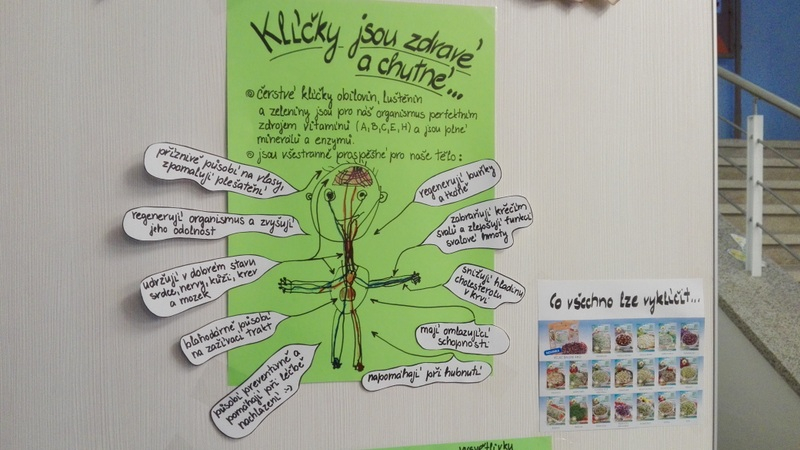 Klíčky jsou zdravé
a chutné...
čerstvé klíčky obilovin, luštěnin
a zeleniny jsou pro náš organismus perfektním
zdrojem vitamínů (A,B,C,E,H) a jsou plné
minerálů a enzymů.
jsou všestranně prospěšné pro naše tělo:
příznivě působí na vlasy,
zpomalují plešatění
regenerují organismus a zvyšují
jeho odolnost
udržují v dobrém stavu
srdce, nervy, kůži, krev
a mozek
blahodárně působí
na zažívací trakt
působí preventivně a
pomáhají při léčbě
nachlazení :-)
regenerují buňky
a tkáně
zabraňují křečím
svalů a zlepšují funkci
svalové hmoty
snižují hladinu
cholesterolu
v krvi
mají omlazující
schopnosti
napomáhají při hubnutí
Co všechno lze vyklíčit...